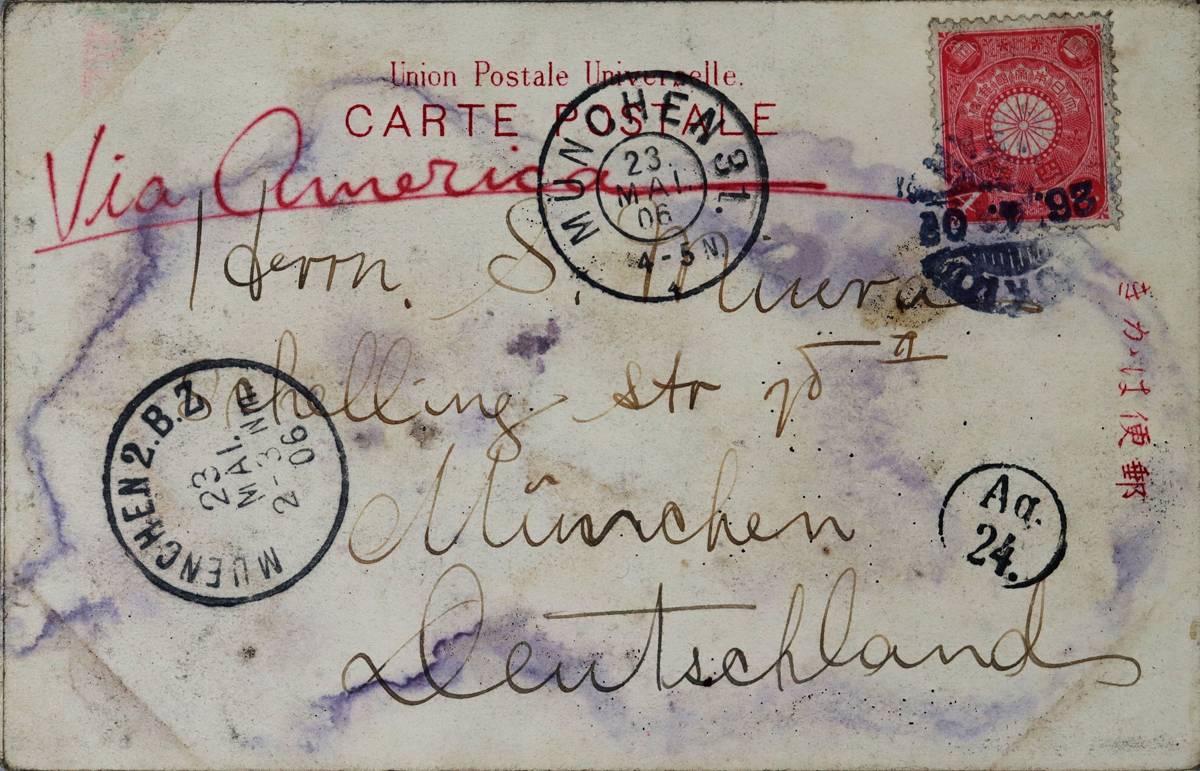 Union Postale Universelle.
CARTE POSTALE
Via America
Herrn. S. Miura
Schelling str 75 II
München
Deutschland
きかは便郵
MÜNCHEN 31.
23.
MAI.
06
4-5 N
MUENCHEN 2.B.Z
23
MAI.
2-3 NM
06
Ag.
24.